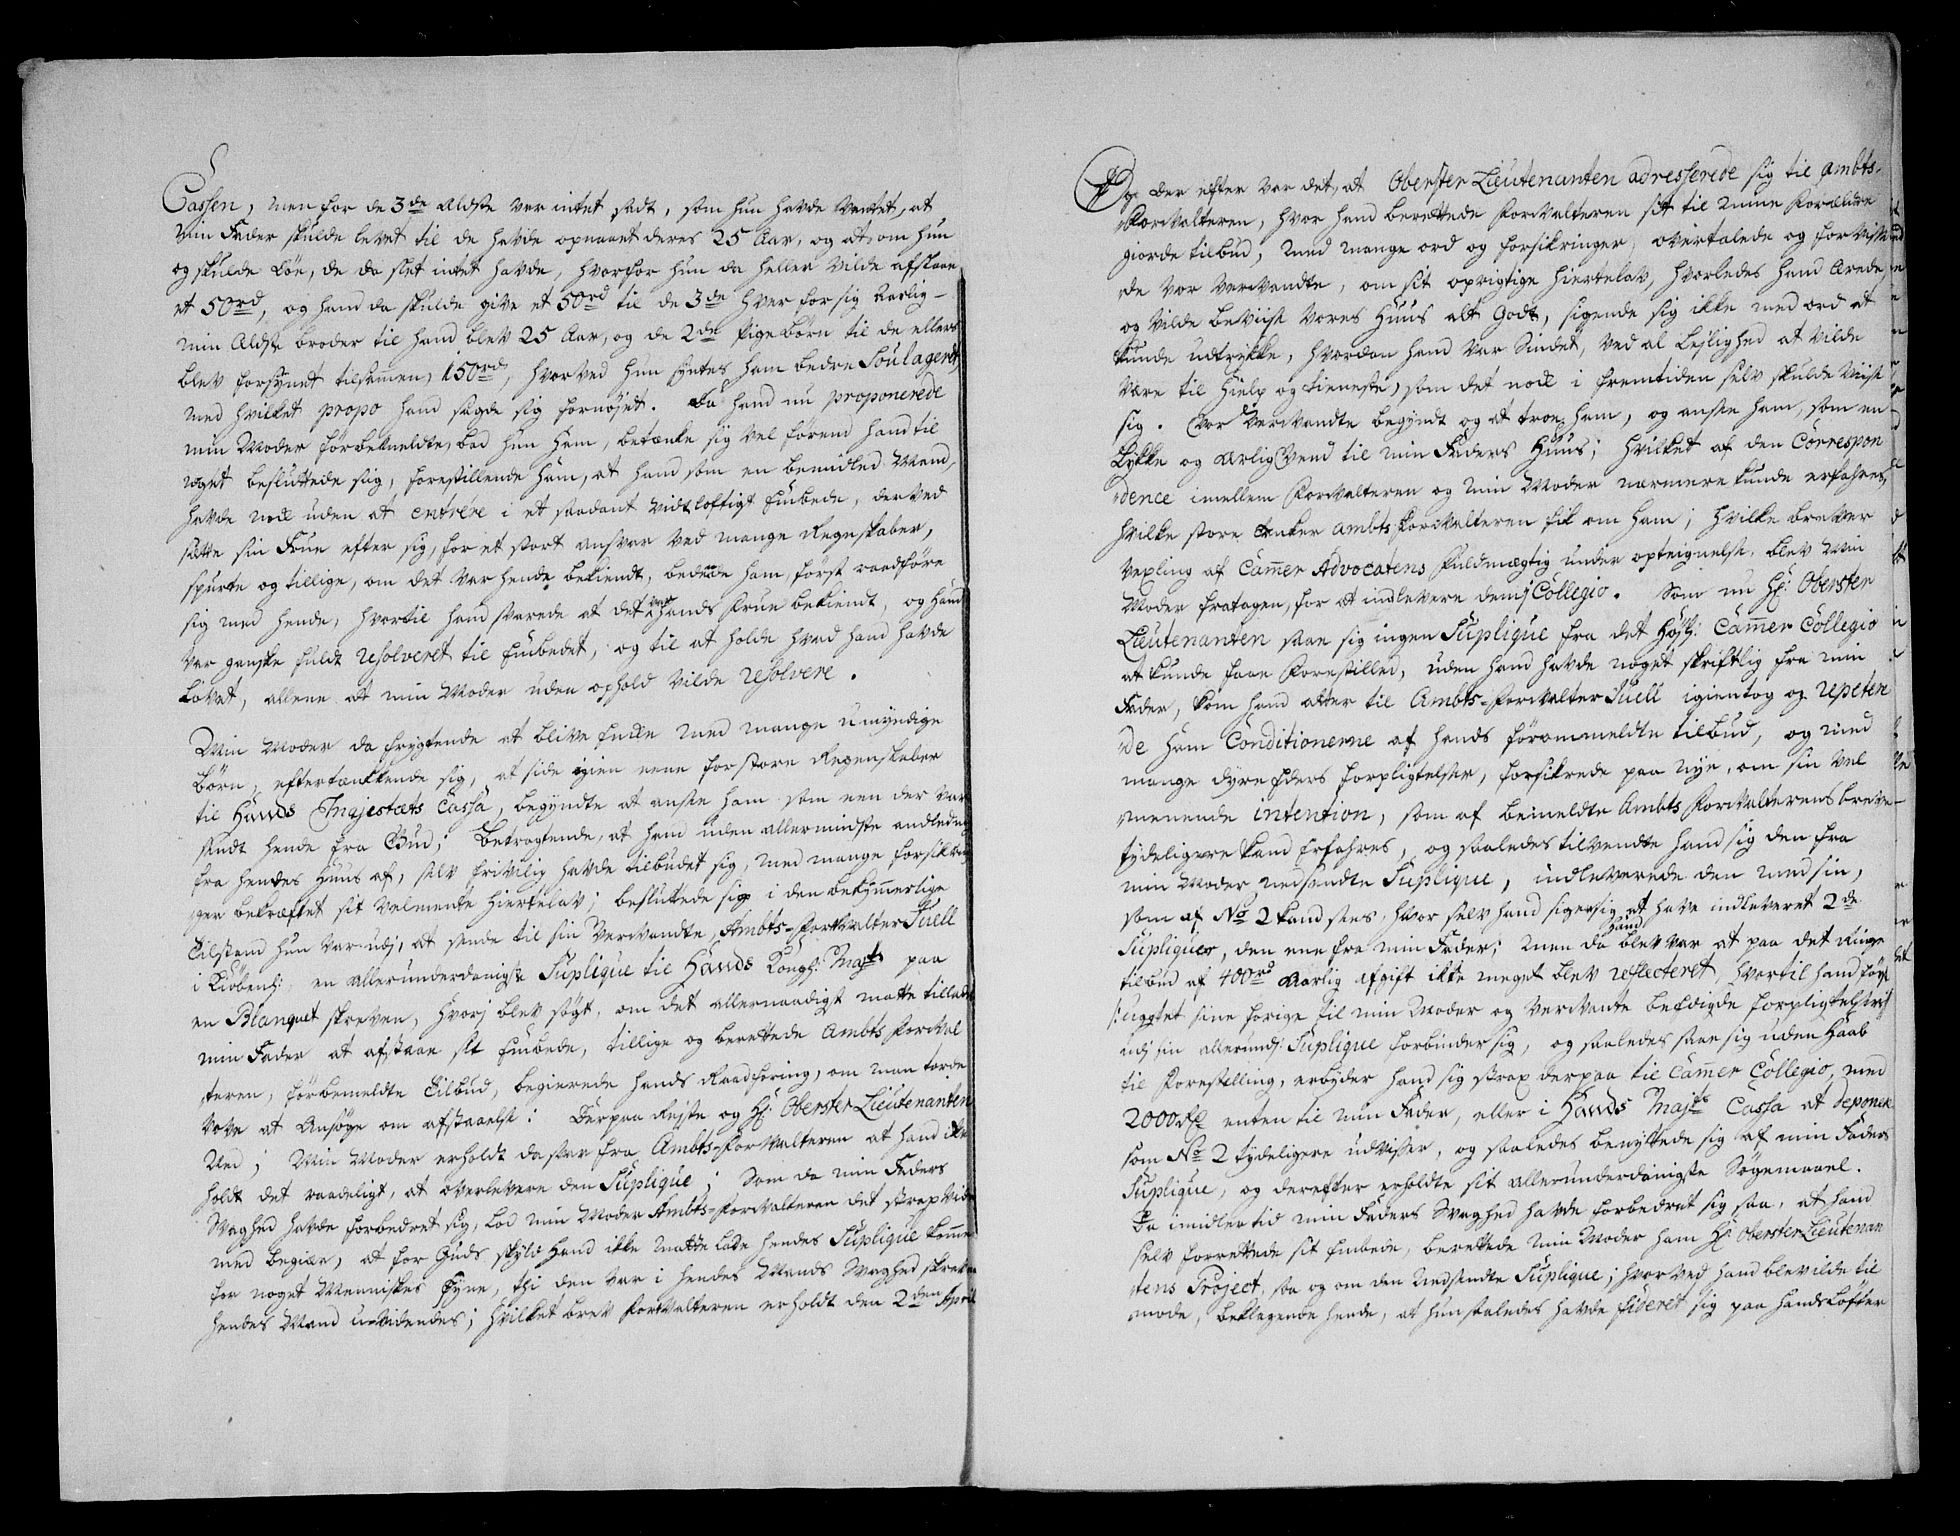 Cassen, men for de 3de Aldste var intet sadt, som hun havde ventet, at
min Fader skulde levet til de havde opnaaet deres 25 Aar, og at, om hun
og skulde Döe, de da slet intet havde, hvorfor hun da heller vilde afstaae
et 50rd, og hand da skulde give et 50rd til de 3de hver for sig Aarlig-
min Aldste broder til hand blev 25 Aar, og de 2de Pigebörn til de ellers
blev forsynet tilsammen, 150rd, hvorved hun syntes ham bedre Soulagerdt
med hvilket propo hand sagde sig fornöyet. Da hand nu proponerede
min Moder forbemeldte, bad hun ham, betænke sig vel förend hand til
noget besluttede sig, forestillende ham, at hand som en bemidled Mand,
havde nok uden at entrere i et saadant vidtløftigt Embede, derved
sætte sin Frue efter sig, for et stort ansvar ved mange Regnskaber,
spurte og tillige, om det var hende bekiendt, bedende ham, först raadföre
sig med hende, hvortil hand svarede at det var hands Frue bekiendt, og hand
var ganske fuldt resolveret til Embedet, og til at holde hvad hand havde
Lovet, allene at min Moder uden ophold vilde resolvere.
Min Moder da frygtende at blive Enke med mange umyndige
börn, eftertænkkende sig, at side igien eene for store Regenskaber
til Hands Majestæts Cassa, begyndte at ansee ham som een der var
sendt hende fra Gud; Betragtende, at hand uden allermindste andledning
fra hendes Huus af, selv frivilig havde tilbudet sig, med mange forsikrin
ger bekræftet sit velmeente Hiertelav; besluttede sig i den bekymmerlige
Tilstand hun var udj, at sende til sin Vervandte, Ambts-Forvalter Juell
i Kiöbenh: en allerunderdanigste Suplique til Hands Kongl: Majts paa
en Blanquet skreven, hvorj blev sögt, om det allernaadigst matte tillades
min Fader at afstaae sit Embede, tillige og berettede Ambts Forval
teren, förbemeldte Tilbud, begierede hands Raadföring, om man torde
vove at Ansöge om afstaaelse: Derpaa Rejste og Hr: Oberster Lieutenanten
Ned; Min Moder erholdt da svar fra Ambts-Forvalteren at hand ikke
holdt det raadeligt, at overlevere den Suplique; Som da min Faders
Svaghed havde forbedret sig, lod min Moder Ambts-Forvalteren det strax vide
med begiær, at for Guds skyld hand ikke matte lade hendes Suplique komme
for noget Menniskes Öyne, thi den var i hendes Mands Svaghed skreven
hendes Mand uvidendes; hvilket brev Forvalteren erholdt den 2den April
Og der efter var det, at Oberster Lieutenanten adresserede sig til Ambts-
Forvalteren, hvor hand berettede Forvalteren sit til mine Forældre
giorde tilbud, med mange ord og forsikringer, overtalede og forvisse
de vor vervandte, om sit oprigtige Hiertelav, hvorledes hand Ærede
og vilde beviise vores Huus alt Godt, sigende sig ikke med ord at
kunde udtrykke, hvordan hand var Sindet, ved al Lejlighed at vilde
være til Hielp og tieneste, som det nok i fremtiden selv skulde viise
sig. Vor Vervandte begyndt og at troe ham, og ansee ham, som en
Lykke og ærlig Vend til min Faders Huus; hvilket af den Correspon
dence imellem Forvalteren og min Moder narmere kunde erfahres,
hvilke store tanker Ambts-Forvalteren fik om ham; hvilke brever
vexling af Cammer Advocatens Fuldmægtig under opteignelse, blev min
Moder fratagen, for at indlevere dem j Collegio. Som nu Hr: Oberster
Lieutenanten saae sig ingen Suplique fra det Höjl: Cammer Collegio
at kunde faae Forestilled, uden hand havde noget skriftlig fra min
Fader, kom hand atter til Ambts-Forvalter Juell igientog og repeter
de ham Conditionerne af hands förommeldte tilbud, og med
mange dyre Eders forpligtelser, forsikrede paa nye, om sin vel
menende intention, som af bemeldte Ambts Forvalterens breve
tydeligere kand Erfahres, og saaledes tilvendte hand sig den fra
min Moder nedsendte Suplique, indleverede den med sin,
som af No 2 kand sees, hvor selv hand siger sig at have indleveret 2de
Supliquer, den ene fra min Fader; men da hand blev var at paa det Ringe
tilbud af 400rd Aarlig afgift ikke meget blev reflecteret, hvortil hand föyl
: sine forige til min Moder og Vervante beEdigde forpligtelser :
udj sin allerund: Suplique forbinder sig, og saaledes saae sig uden Haab
til Forestilling, erbyder hand sig strax derpaa til Cammer Collegio, med
2000rd enten til min Fader, eller i Hands Majts Cassa at deponere
som No 2 tydeligere udviser, og saaledes benyttede sig af min Faders
Suplique, og derefter erholdte sit allerunderdanigste Sögemaael.
Da imidlertid min Faders Svaghed havde forbedret sig saa, at hand
selv forrettede sit Embede, berettede min Moder ham Hr: Oberster Lieutenan
tens Project, saa og om den Nedsendte Suplique; hvorved hand blev ilde til
mode, beklagende hende, at hun saaledes havde fixeret sig paa hands Löfter